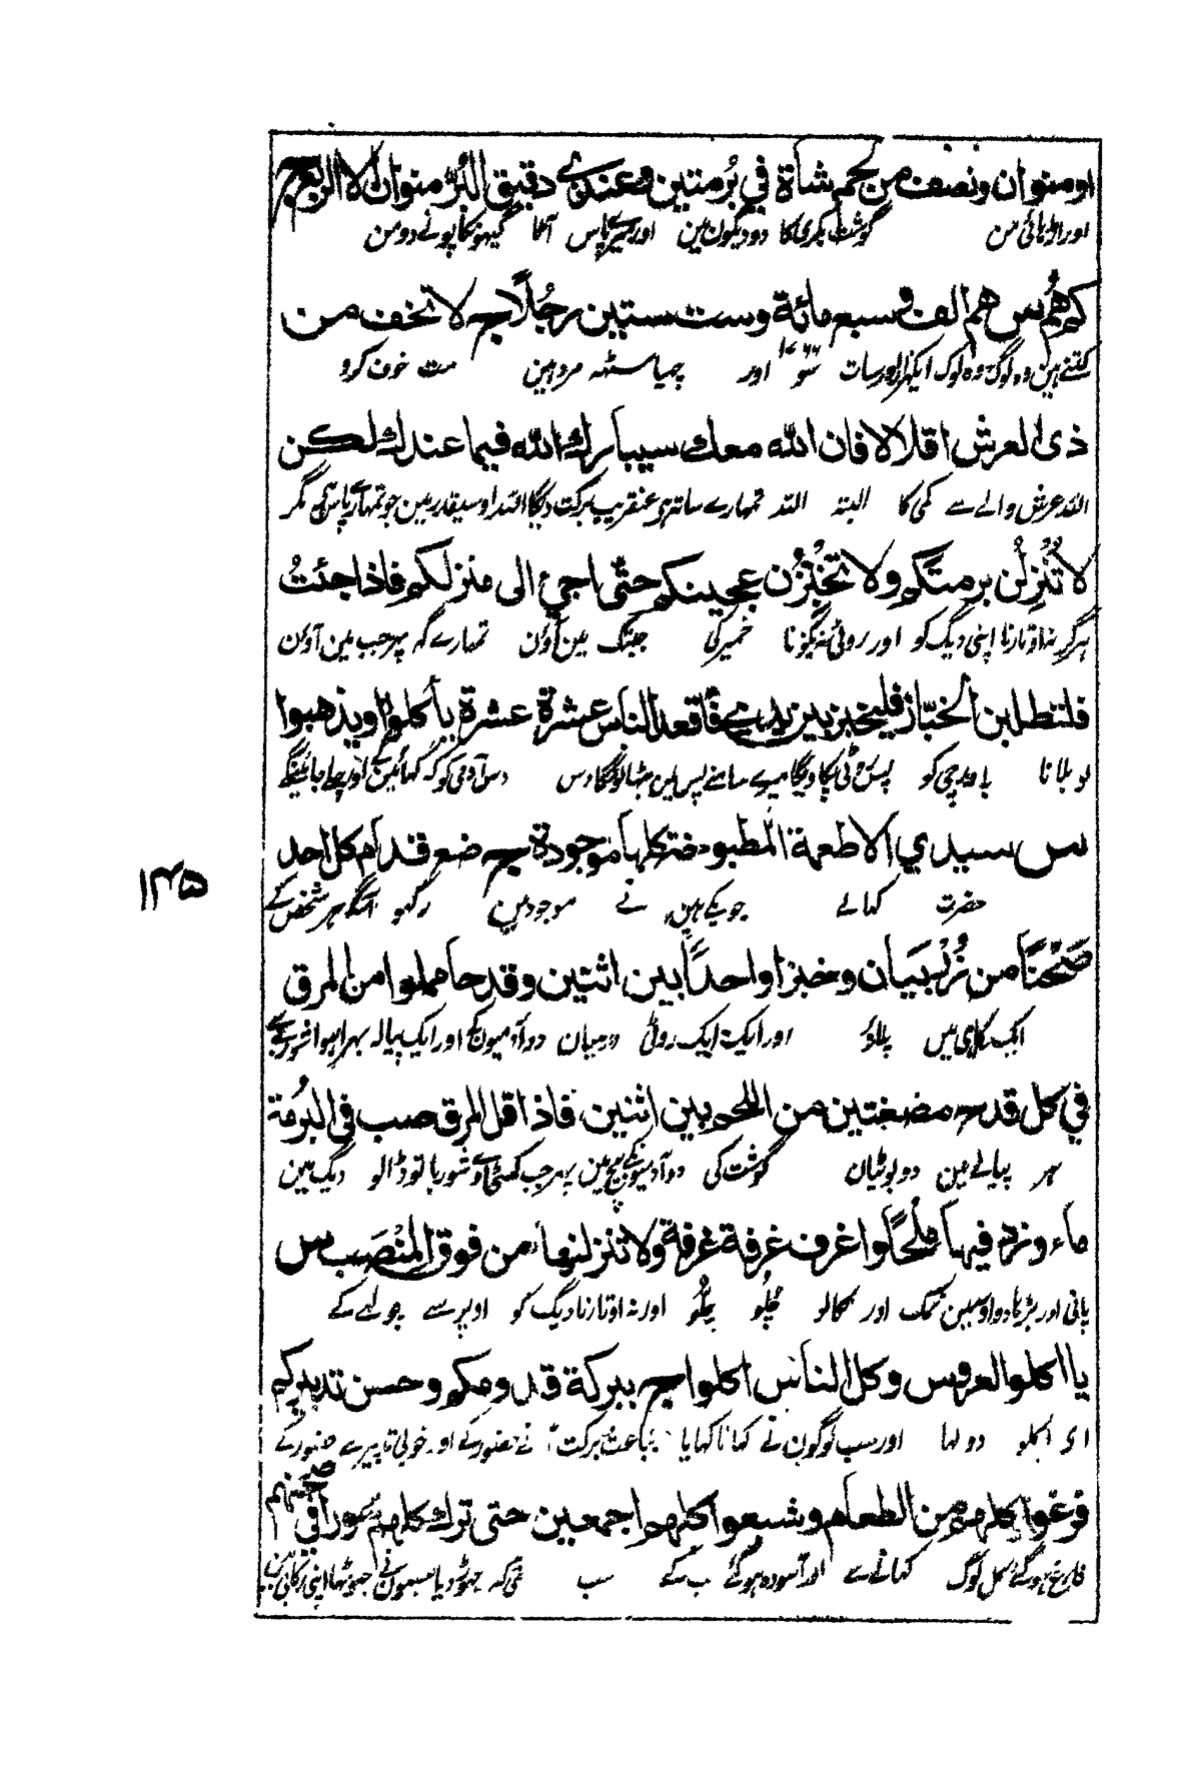 او منوان ونصف من لحم شاة في بُرمتين وعندي دقيق البُرّ منوان الا الربع ج
اور اڑہائی من گوشت بکری کا دو دیگون مین اور میرے پاس آٹا گیہونکا پونے دو من
كم هُم س هم الف و سبع مائة وست ستين رجُلاً ج لا تخف من
کتنے ہین وہ لوگ وہ لوگ ایکہزار اور سات سَو ۱۷۶۶ اور چہیاسٹہ مرد ہین مت خوف کرو
ذى العرش اقلالا فان الله معك سيبارك الله فيما عندك لكن
اللہ عرش والے سے کمی کا البتہ اللہ تمہارے ساتہ ہی عنقریب برکت دیگا اللہ اوسیقدر مین جو تمہارے پاس ہی مگر
لا تُنزِلُن برمتكم ولا تخْبُزُن عجينكم حتّى اجي الى منزلكم فاذا جئتُ
ہرگز نہ اوتارنا اپنی دیگ کو اور روٹی نہ پکونا خمیر کی جبتک مین آؤن تمہارے گہر پہر جب مین آؤن
فلتطلبن الخبّاز فليخبز بين يدي فاقعد الناس عشرة عشرة يأكلوا ويذهبوا
تو بلانا باورچی کو پس روٹی پکاویگا میرے سامنے پس مین بٹہاؤنگا دس دس آدمی کو کہ کہائینگے اور چلے جائینگے
س سيدي الاطعمة المطبوخة كلها موجودة ج ضع قدام كل احد
حضرت کہانے جو پکے ہین نے موجود ہین رکہو آگے ہر شخص کے
صَحْنًا من زُرْبَيَان وخبزا واحدًا بين اثنين وقدحا مملوا من المرق
ایک رکابی مین پلاؤ اور ایک ایک روٹی درمیان دو آدمیون کے اور ایک پیالہ بہرا ہوا شوربے
في كل قدح مضغتين من اللحم بين اثنين فاذا قل المرق صب فى البُرمة
ہر پیالے مین دو بوٹیان گوشت کی دو آدمیونکے بیچ مین پہر جب کم ہو جاوے شوربا تو ڈالو دیگ مین
ماء وزد فيها مِلحًا واغرف غرفة غرفة ولا تنزلنها من فوق المنْصَب س
پانی اور بڑہادو اوسمین نمک اور نکالو چُلّو چُلّو اور نہ اوتارنا دیگ کو اوپر سے چولہے کے
يا اكلوا لعروس وكل الناس اكلوا ج ببركة قدومكم وحسن تدبيركم
ای دولہا اور سب لوگون نے کہانا کہایا بباعث برکت حضور کے اور خوبی تدبیر حضور کے
فرغوا كلهم من الطعام وشبعوا كلهم اجمعين حتى ترك كلهم سورا في صحنهم
فارغ ہوگئے کل لوگ کہانے سے اور آسودہ ہوگئے سب کے سب حتی کہ چہوڑ دیا سبہون نے جہوٹہا اپنی رکابی مین
۱۴۵